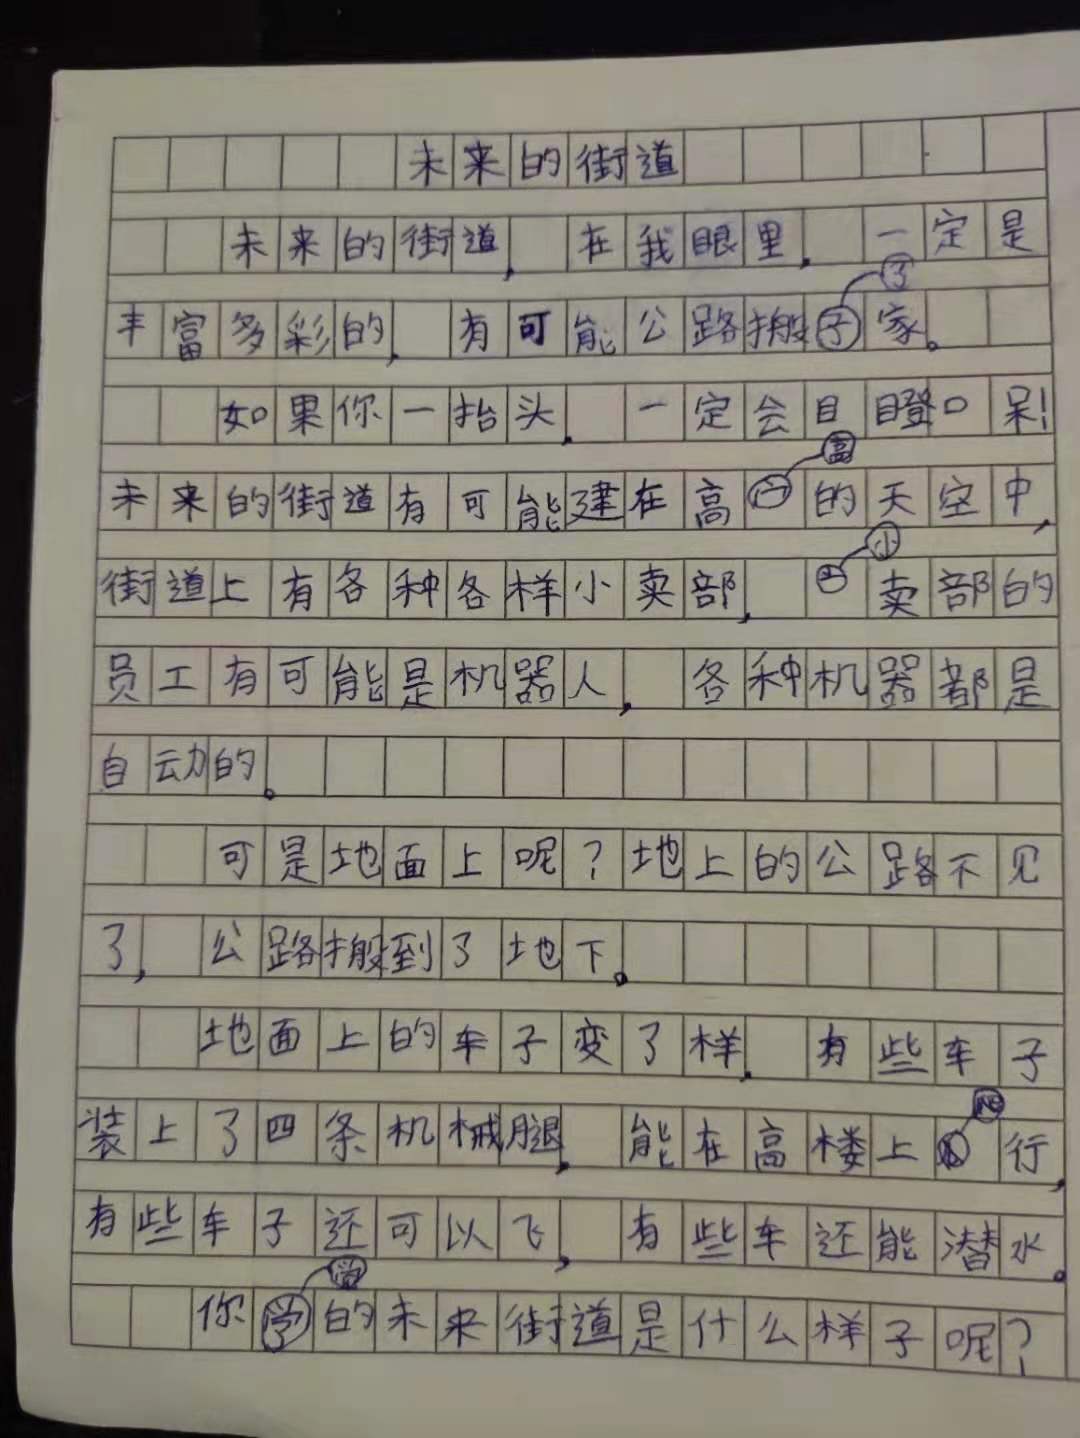 未来的街道
未来的街道,在我眼里,一定是
丰富多彩的,有可能公路搬了家。
如果你一抬头,一定会目瞪口呆!
未来的街道有可能建在高高的天空中,
街道上有各种各样小卖部,小卖部的
员工有可能是机器人,各种机器都是
自动的。
可是地面上呢?地上的公路不见
了,公路搬到了地下。
地面上的车子变了样,有些车子
装上了四条机械腿,能在高楼上爬行,
有些车子还可以飞,有些车还能潜水。
你的未来街道是什么样子呢?